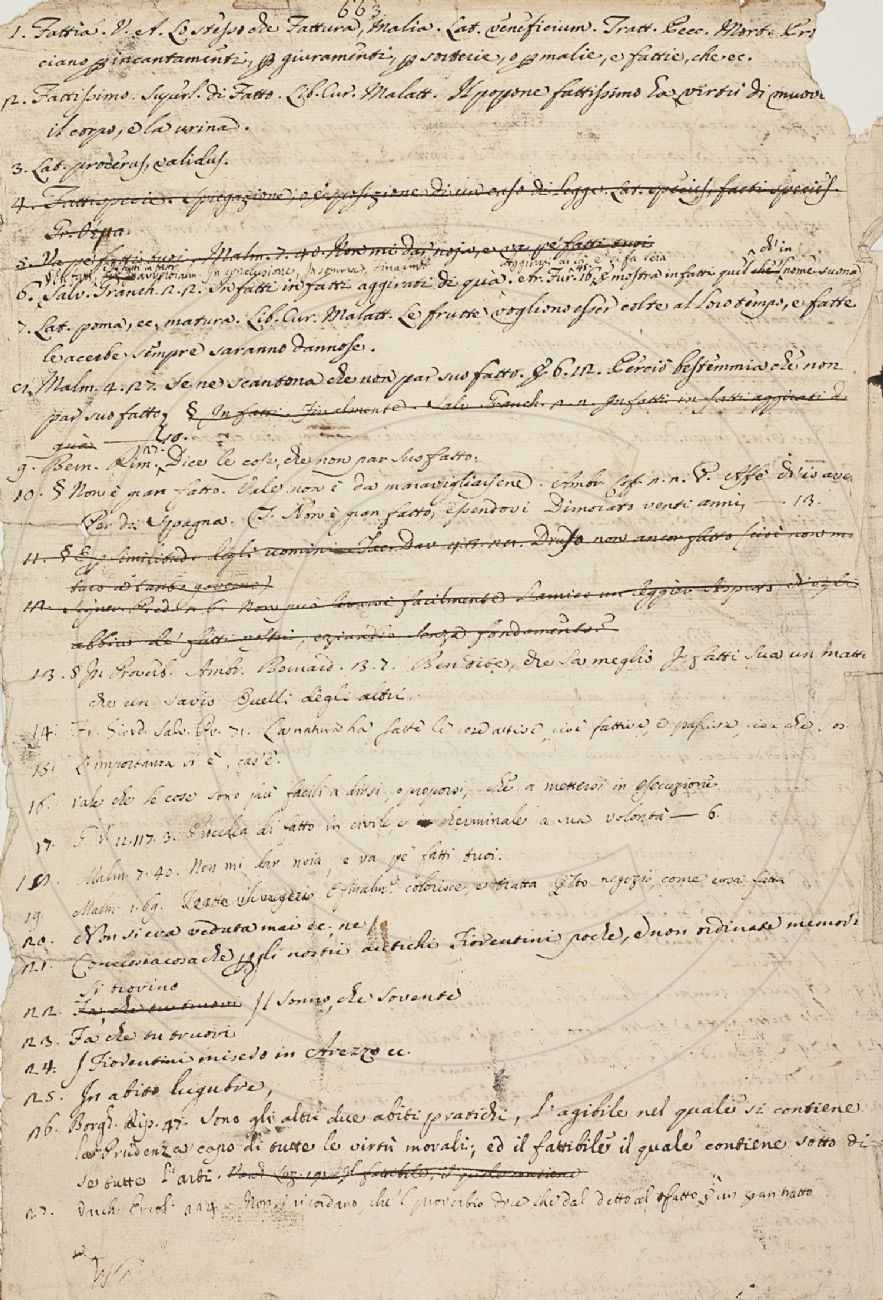 663
1. Fattia. V. A. Lo stesso che Fattura, Malia. Lat. veneficium. Tratt. Pecc. Mort. Pri
ciano p incantamenti, p giuramenti, p sorterie, o p malie, e fattie, che ec.
2. Fattissimo. Superl. di Fatto. Lib. Cur. Malatt. Il popone fattissimo ha virtù di muove
il corpo, e la urina.
3. Lat. procerus, validus.
4. Fattispecie. Spiegazione, o esposizione di un caso di Legge. Lat. species, facti species.
Gr.
5. Va pe' fatti suoi. Malm. 7. 40. Non mi dar noja, e va pe' fatti tuoi
In conclusione, In somma, finalmte
6. Salv. Granch. 2. 2. In fatti in fatti aggirati di quà. Ar. Fur. 18. E mostra in fatti quel ch' in nome suona
7. Lat. poma, ec. matura. Lib. Cur. Malatt. Le frutte vogliono esser colte al loro tempo, e fatte
le acerbe sempre saranno dannose.
8. Malm. 4. 27. Se ne scantona che non par suo fatto. E 6. 12. Perciò bestemmia che non
par suo fatto. § In fatti. Finalmente. Salv. Granch. 2. 2. In fatti in fatti aggirati d
quà 10.
9. Bern. Rim. Dice le cose, che non par suo fatto.
10. § Non è gran fatto. Vale non è da maravigliarsene. Ambr. Cof. 2. 2. V. Affè ch' io ave
Per da Spagna. G. Non è gran fatto, essendovi Dimorato venti anni, — 13.
11. § E p similitud. degli uomini. Tac. Dav. Druso non ancor fatto (cioè non m
turo a tanto governo)
12. Segner. Pred. 2. 6. Non può levarsi facilmente l'amico un leggier sospetto ch' egli
abbia de' fatti vostri, eziandio senza fondamento?
13. § In Proverb. Ambr. Bernard. 3. 7. Ben dice, che sa meglio I fatti sua un matto
che un savio Quelli degli altri.
14. Fr. Giord. Salv. Pr. 71. La natura ha fatte le cose attive, cioè fattive, e passive, cioè che
15. L'importanza si è, cos' è.
16. Vale che le cose sono più facili a dirsi, o proporsi, che a mettersi in esecuzione
17. G. V. 11. 117. 3. di fatto in civile e cherminale a sua volontà — 6.
18. Malm. 7. 40. Non mi dar noia, e va pe' fatti tuoi.
19. Malm. 1. 69. E finalm.e colorisce, e tratta negozio, come cosa fatta
20. Non si era veduta mai ec. ne
21. Conciossiacosache pgli nostri antichi Fiorentini poche, e non ordinate memori
si trovino
22. Fa, che tu truovi Il sonno, che sovente
23. Fà che tu truovi
24. I Fiorentini misero in Arezzo ec.
25. In abito lugubre,
26. Borgh. Rip. 47. Sono gli altri due abiti pratichi, L'agibile nel quale si contiene
la Prudenza capo di tutte le virtù morali; ed il fattibile il quale contiene sotto di
se tutte l'arti. il fattibile, il quale contiene
27. Varch. Ercol. Non si ricordano, che 'l proverbio dice che dal detto al fatto è un gran tratto